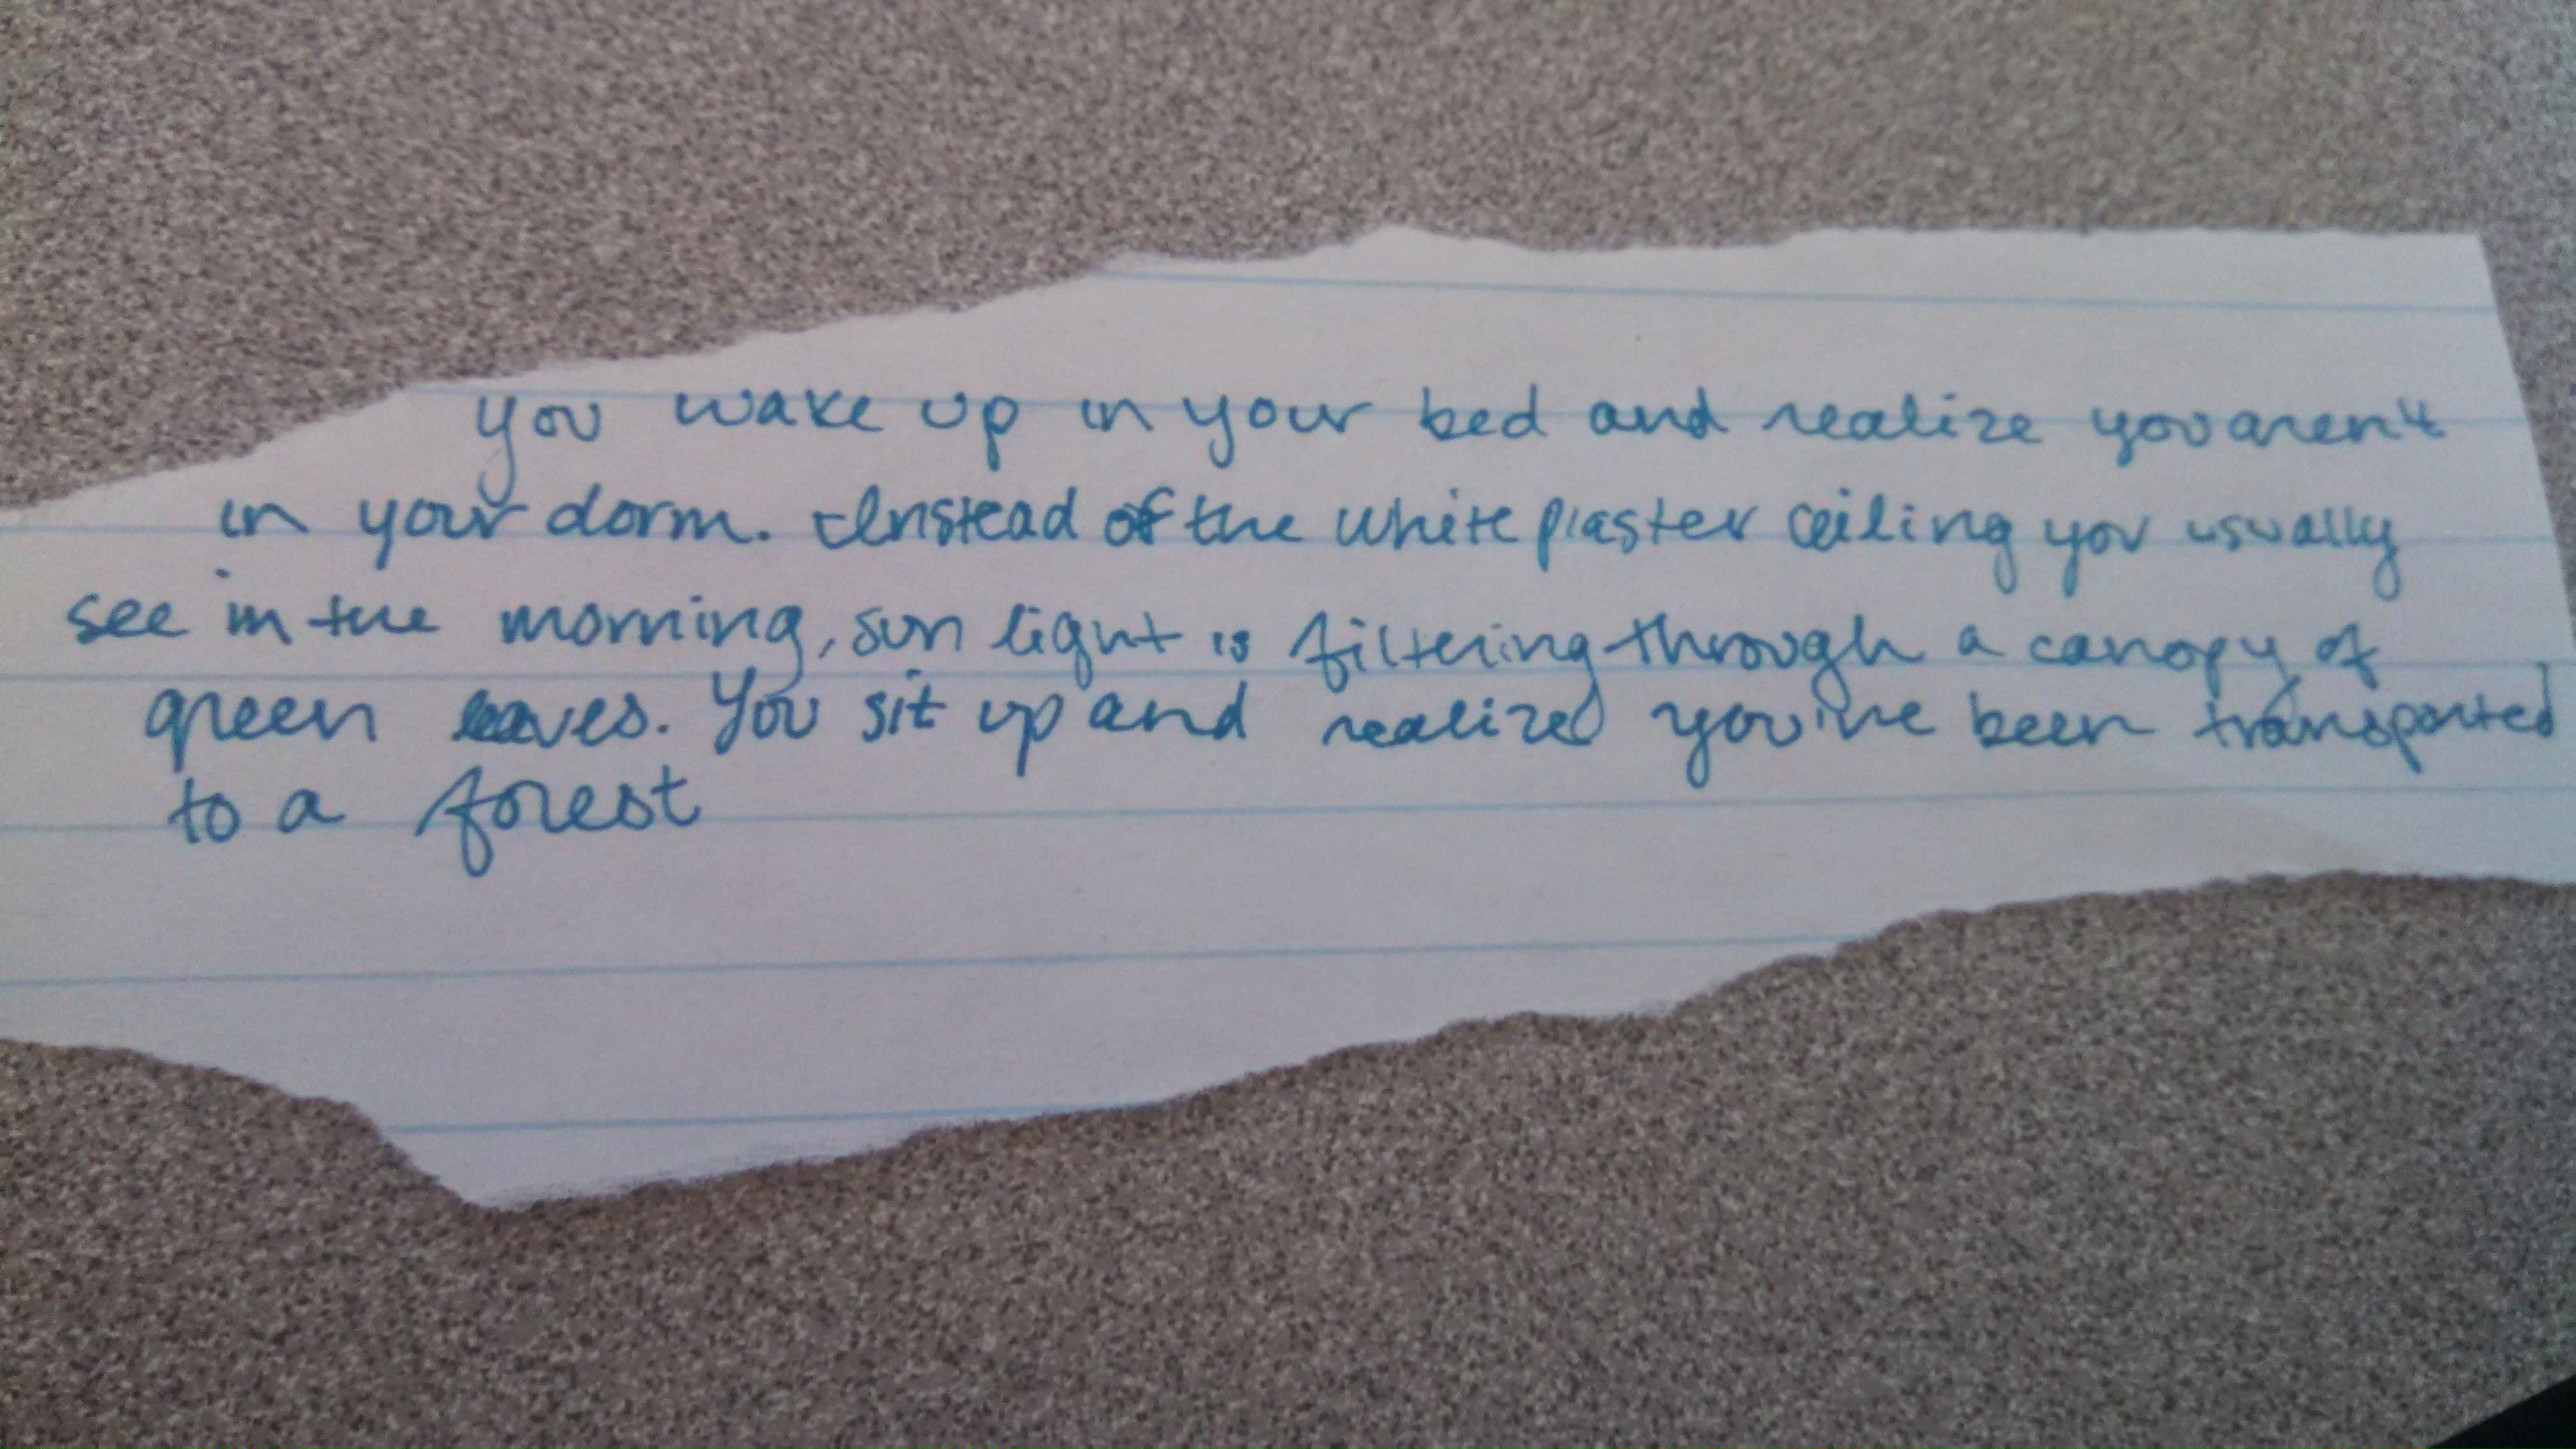 you wake up in your bed and realize you aren't
in your dorm. Instead of the white plaster ceiling you usually
see in the morning, sun light is filtering through a canopy of
green leaves. You sit up and realized you've been transported
to a forest